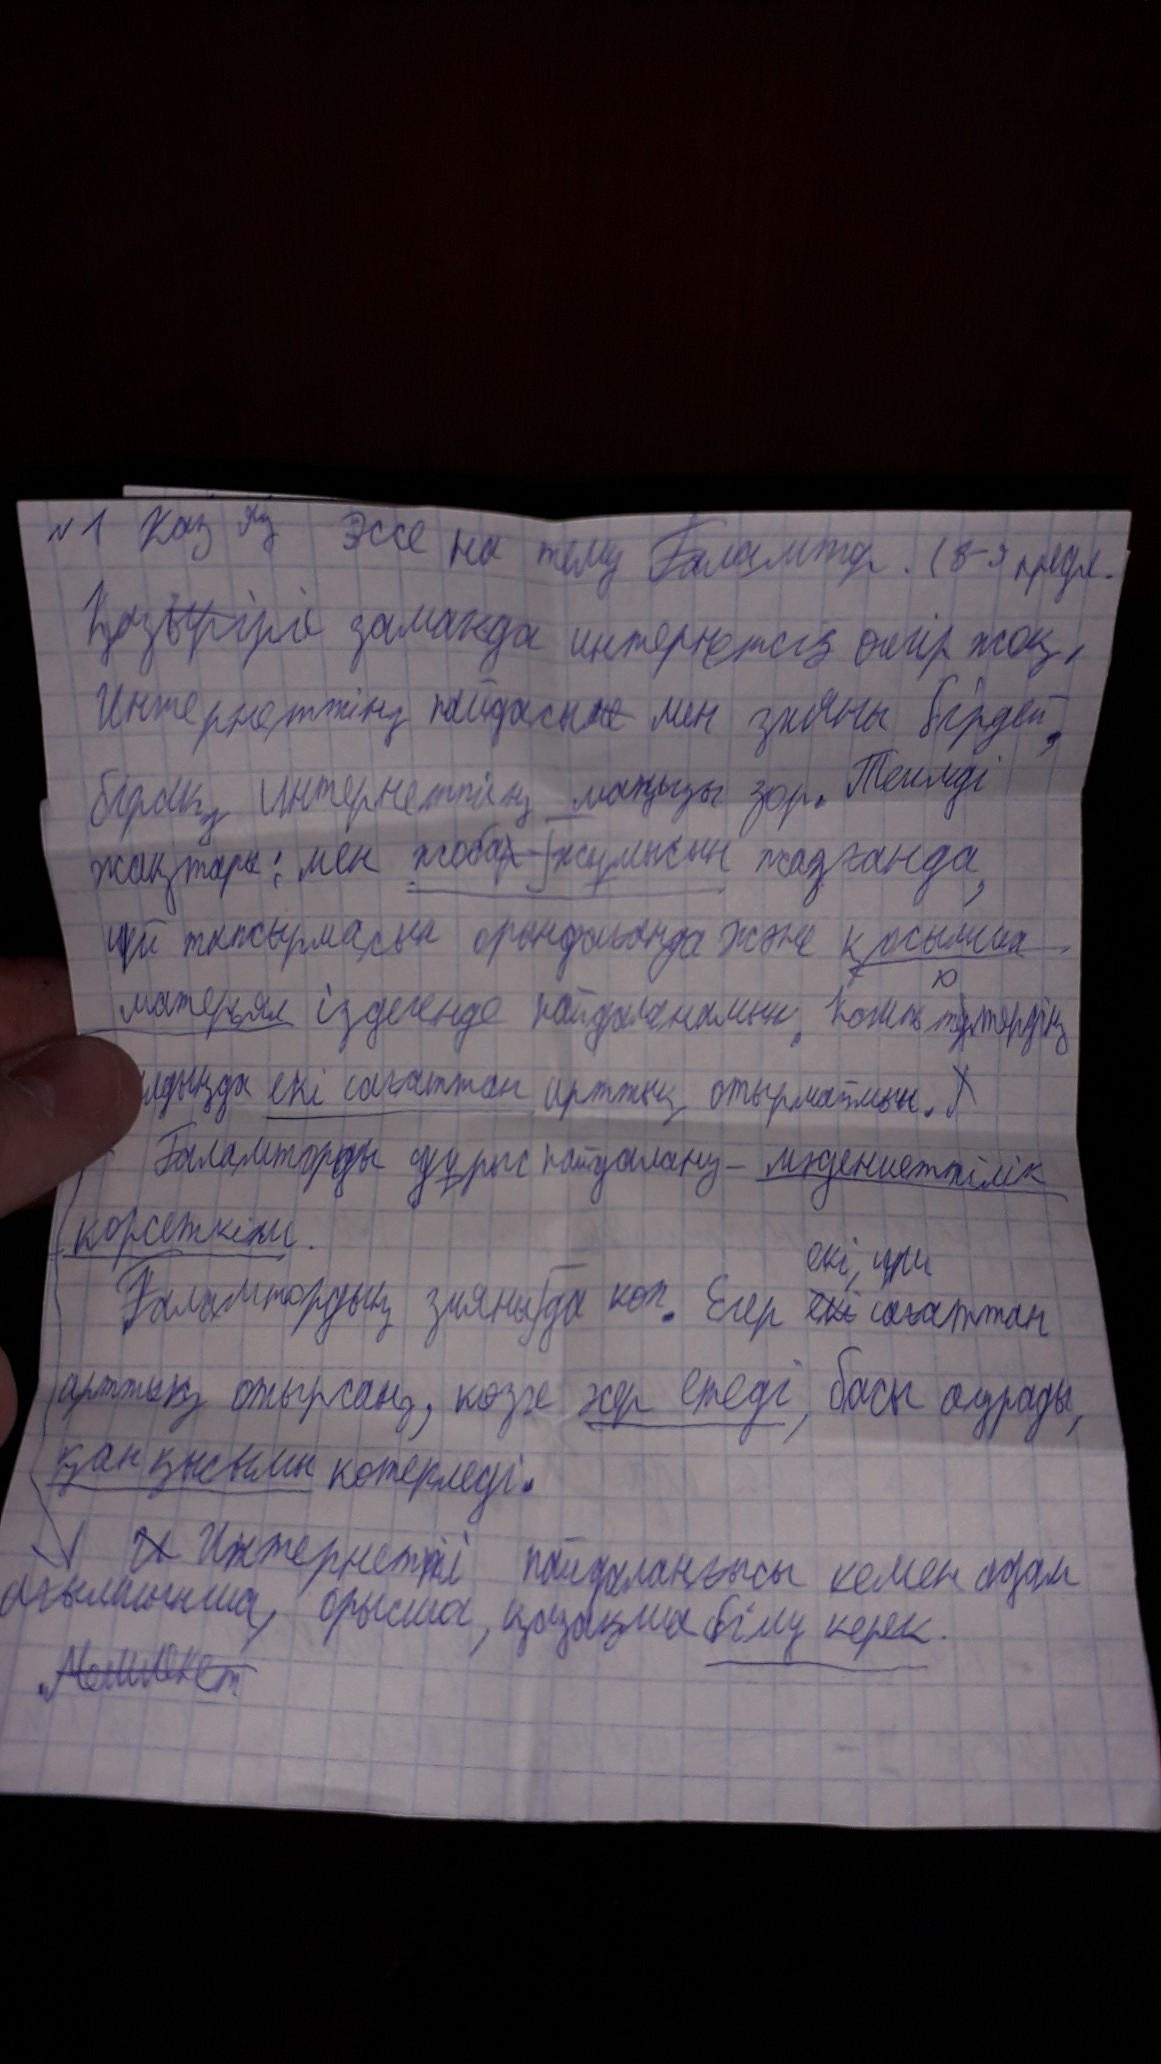 №1 Каз яз Эссе на тему Ғаламтор. (8-9 предл.
Қазіргі заманда интернетсіз өмір жоқ,
Интернеттің пайдасы мен зияны бірдей,
бірақ интернеттің маңызы зор. Тиімді
жақтары: мен жоба жұмысын жазғанда,
үй тапсырмасын орындағанда және қосымша
материял іздегенде пайдаланамын.
алдында екі сағаттан арттық отырмаймын. X
Ғаламторды дұрыс пайдалану - мәдениеттілік
көрсеткіші.
екі, үш
Ғаламтордың зияны да көп. Егер екі сағаттан
арттық отырсаң, көзге зор етеді, басы ауырады,
қан қысымы көтерледі.
X Интернетті пайдаланғысы келген адам
ағылшынша, орысша, қазақша білу керек.